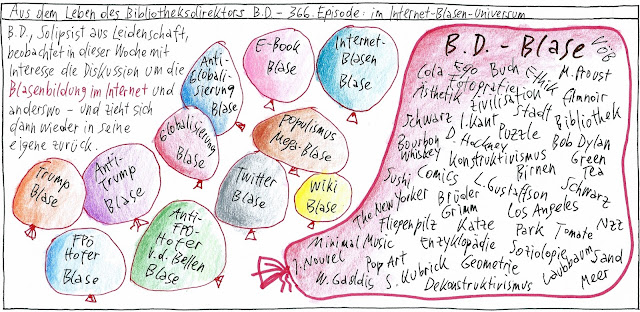 Aus dem Leben des Bibliotheksdirektors B.D. - 366. Episode: im Internet-Blasen-Universum
B.D., Solipsist aus Leidenschaft,
beobachtet in dieser Woche mit
Interesse die Diskussion um die
Blasenbildung im Internet und
anderswo – und zieht sich
dann wieder in seine
eigene zurück.
Anti-
Globali-
sierung
Blase
E-Book
Blase
Internet-
Blasen
Blase
Globalisierung
Blase
Populismus
Mega-Blase
Trump
Blase
Anti-
Trump
Blase
Twitter
Blase
Wiki
Blase
FPÖ
Hofer
Blase
Anti-
FPÖ-
Hofer
V.d. Bellen
Blase
B.D. - Blase
VÖB
Cola Ego Buch Ethik M. Proust
Ästhetik Fotografie Zivilisation Filmnoir
Schwarz I. Kant Stadt Bibliothek
Bourbon Whiskey D. Hockney Puzzle Bob Dylan
Konstruktivismus Birnen Green Tea
Sushi Comics L. Gustafsson Schwarz
The New Yorker Brüder Grimm Los Angeles
Fliegenpilz Katze Park Tomate NZZ
Minimal Music Enzyklopädie Soziologie
J. Nouvel Pop Art Geometrie Laubbaum Sand
W. Gaddis S. Kubrick Dekonstruktivismus Meer